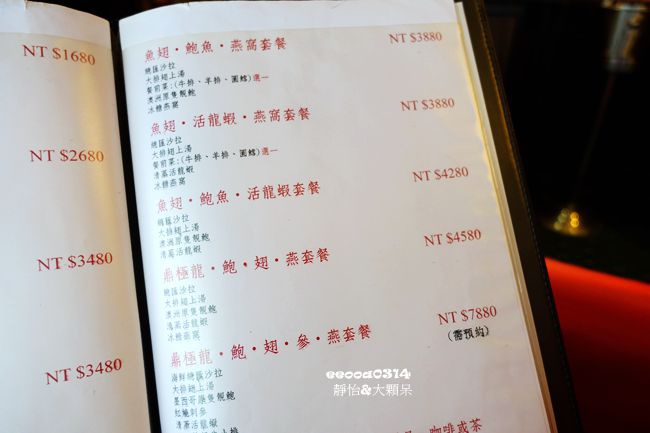 NT $1680
NT $2680
NT $3480
NT $3480
魚翅・鮑魚・燕窩套餐 NT $3880
繞匯沙拉
大排翅上湯
餐前菜:(牛排、羊排、圓鱈)選一
澳洲原隻靚鮑
冰糖燕窩
魚翅・活龍蝦・燕窩套餐 NT $3880
繞匯沙拉
大排翅上湯
餐前菜:(牛排、羊排、圓鱈)選一
清蒸活龍蝦
冰糖燕窩
魚翅・鮑魚・活龍蝦套餐 NT $4280
繞匯沙拉
大排翅上湯
澳洲原隻靚鮑
清蒸活龍蝦
鼎極龍・鮑・翅・燕套餐 NT $4580
繞匯沙拉
大排翅上湯
澳洲原隻靚鮑
清蒸活龍蝦
冰糖燕窩
鼎極龍・鮑・翅・參・燕套餐 NT $7880
(需預約)
海鮮繞匯沙拉
大排翅上湯
墨西哥原隻靚鮑
紅燒刺參
清蒸活龍蝦
咖啡或茶
eeooa0314
靜怡&大顆呆